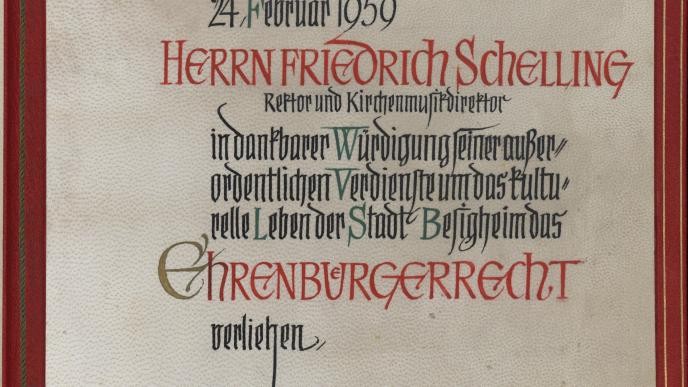 24. Februar 1959
HERRN FRIEDRICH SCHELLING
Rektor und Kirchenmusikdirektor
in dankbarer Würdigung seiner außer=
ordentlichen Verdienste um das kultu=
relle Leben der Stadt Besigheim das
EHRENBÜRGERRECHT
verliehen